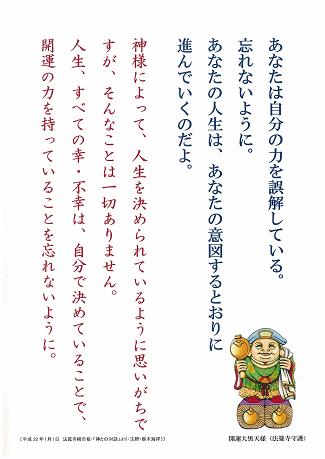 あなたは自分の力を誤解している。
忘れないように。
あなたの人生は、あなたの意図するとおりに
進んでいくのだよ。
神様によって、人生を決められているように思いがちで
すが、そんなことは一切ありません。
人生、すべての幸・不幸は、自分で決めていることで、
開運の力を持っていることを忘れないように。
開運大黒天様（法龍寺守護）
（平成22年1月1日 法龍寺掲示板・「神との対話」より・注釈・鈴木海洋）